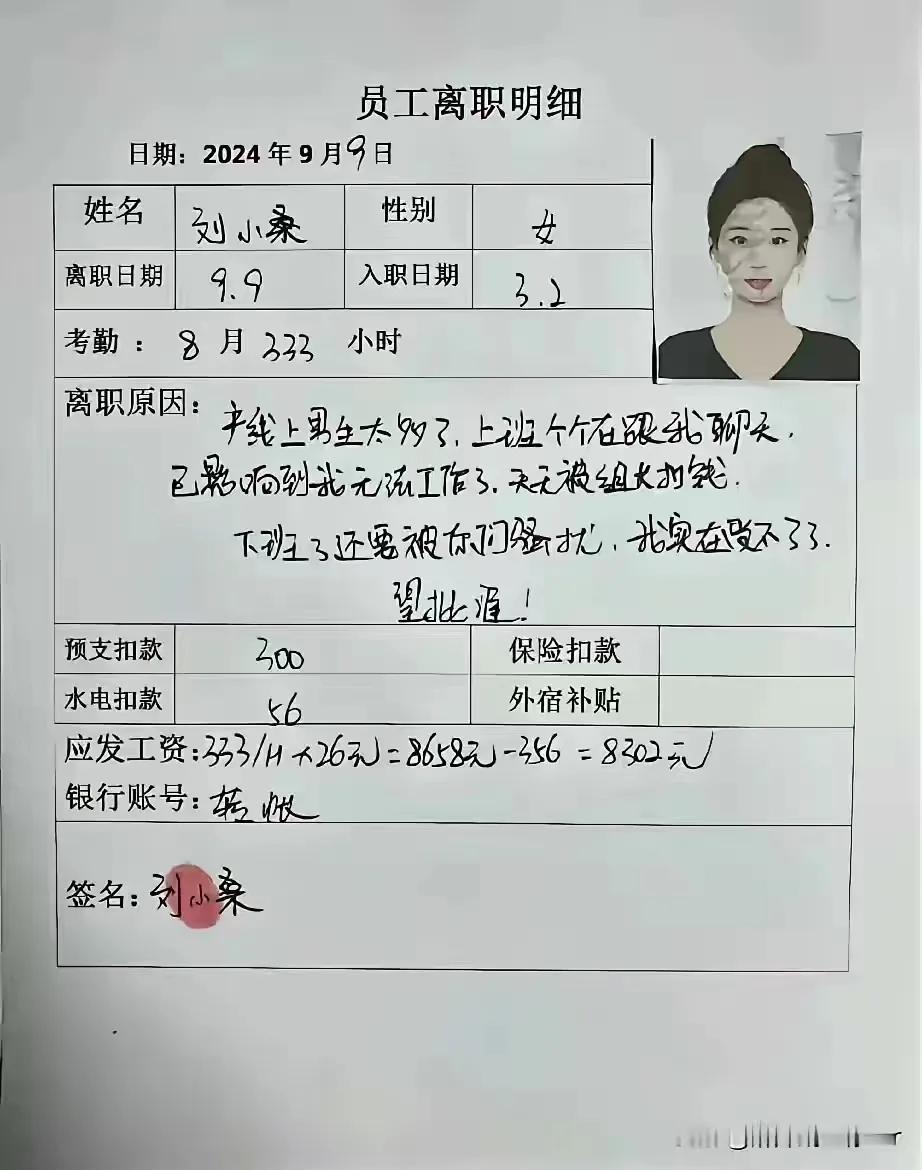 员工离职明细
日期：2024 年 9 月 9 日
姓名 刘小桑 性别 女
离职日期 9.9 入职日期 3.2
考勤 ： 8 月 333 小时
离职原因：产线上男生太多了，上班个个在跟我聊天，
已影响到我无法工作了，天天被组长扣钱.
下班了还要被你们骚扰，我实在受不了了.
望批准！
预支扣款 300 保险扣款
水电扣款 56 外宿补贴
应发工资：333/H×26元=8658元-356=8302元
银行账号：转账
签名：刘小桑